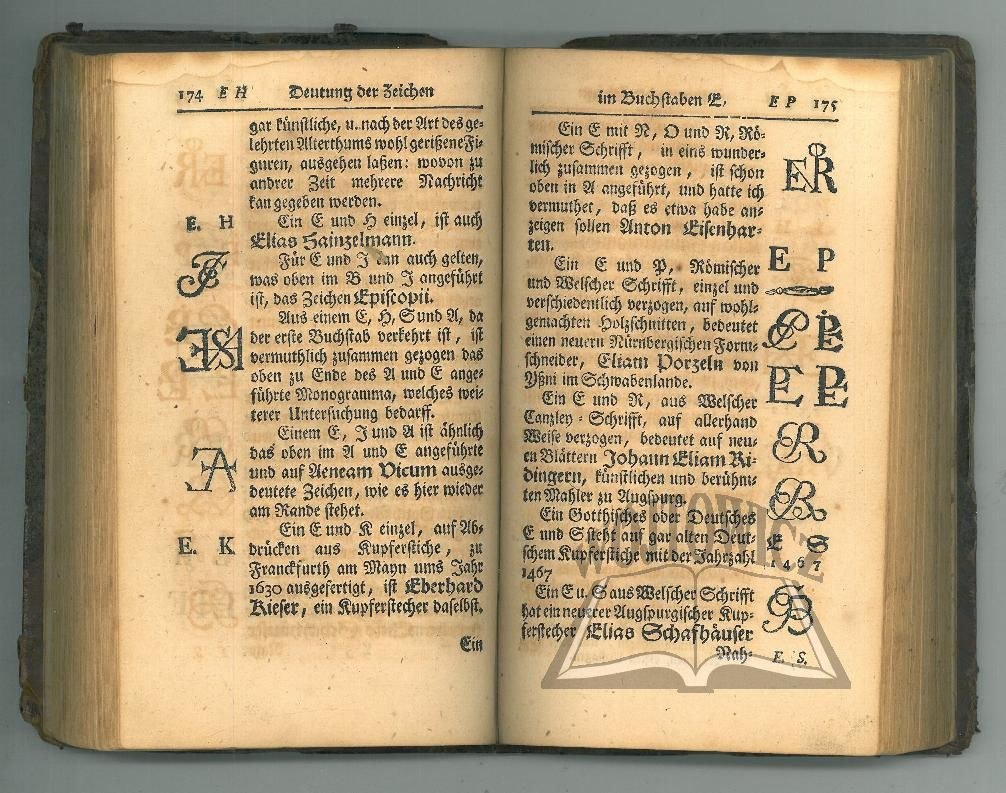 174 E H Deutung der Zeichen
gar künstliche, u. nach der Art des ge-
lehrten Alterthums wohl gerißene Fi-
guren, ausgehen laßen: wovon zu
andrer Zeit mehrere Nachricht
kan gegeben werden.
E. H Ein E und H einzel, ist auch
Elias Hainzelmann.
Für E und J kan auch gelten,
was oben im B und J angeführt
ist, das Zeichen Episcopii.
Aus einem E, H, S und A, da
der erste Buchstab verkehrt ist, ist
vermuthlich zusammen gezogen das
oben zu Ende des A und E ange-
führte Monogramma, welches wei-
terer Untersuchung bedarff.
Einem E, J und A ist ähnlich
das oben im A und E angeführte
und auf Aeneam Vicum ausge-
deutete Zeichen, wie es hier wieder
am Rande stehet.
E. K Ein E und K einzel, auf Ab-
drücken aus Kupferstiche, zu
Franckfurth am Mayn ums Jahr
1630 ausgefertigt, ist Eberhard
Kieser, ein Kupferstecher daselbst.
Ein
im Buchstaben E. E P 175
Ein E mit N, O und R, Rö-
mischer Schrifft, in eins wunder-
lich zusammen gezogen, ist schon
oben in A angeführt, und hatte ich
vermuthet, daß es etwa habe an-
zeigen sollen Anton Eisenhar-
ten.
Ein E und P, Römischer E P
und Welscher Schrifft, einzel und
verschiedentlich verzogen, auf wohl-
gemachten Holzschnitten, bedeutet
einen neuern Nürnbergischen Form-
schneider, Eliam Porzeln von
Yßni im Schwabenlande.
Ein E und R, aus Welscher
Canzley-Schrifft, auf allerhand
Weise verzogen, bedeutet auf neu-
en Blättern Johann Eliam Ri-
dingern, künstlichen und berühm-
ten Mahler zu Augspurg.
Ein Gotthisches oder Deutsches
E und S steht auf gar alten Deut- E S
schem Kupferstiche mit der Jahrzahl 1467
1467
Ein E u. S aus Welscher Schrifft
hat ein neuerer Augspurgischer Kup-
ferstecher Elias Schafhäuser
Nah- E. S.